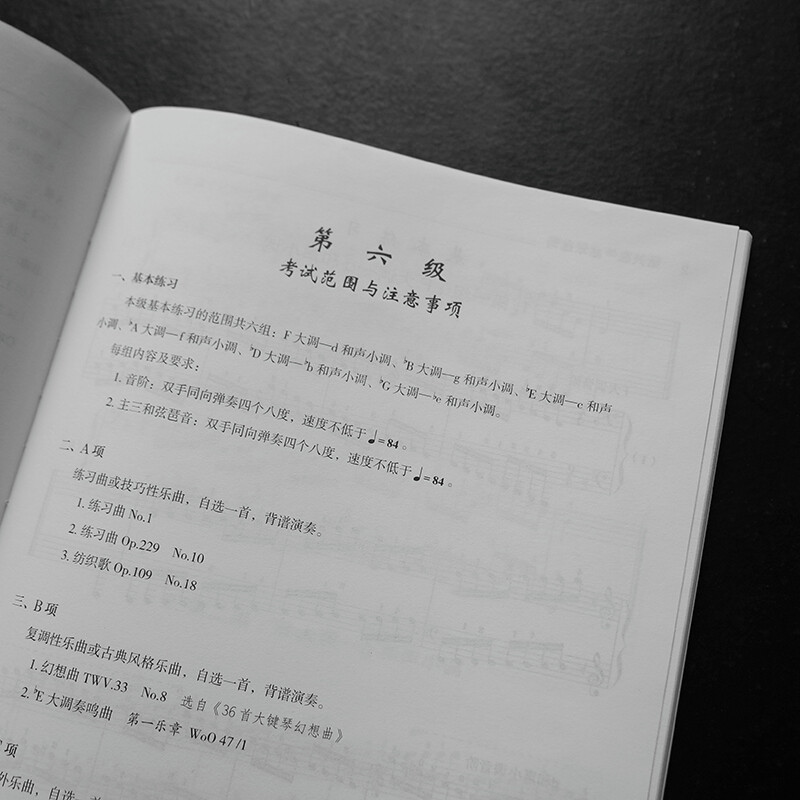 第六级
考试范围与注意事项
一、基本练习
本级基本练习的范围共六组：F 大调—d 和声小调、♭B 大调—g 和声小调、♭E 大调—c 和声
小调、♭A 大调—f 和声小调、♭D 大调—♭b 和声小调、♭G 大调—♭e 和声小调。
每组内容及要求：
1. 音阶：双手同向弹奏四个八度，速度不低于♩= 84 。
2. 主三和弦琶音：双手同向弹奏四个八度，速度不低于♩= 84 。
二、A 项
练习曲或技巧性乐曲，自选一首，背谱演奏。
1. 练习曲 No.1
2. 练习曲 Op.229 No.10
3. 纺织歌 Op.109 No.18
三、B 项
复调性乐曲或古典风格乐曲，自选一首，背谱演奏。
1. 幻想曲 TWV.33 No.8 选自《36 首大键琴幻想曲》
2. ♭E 大调奏鸣曲 第一乐章 WoO 47 /1
项
外乐曲，自选一首